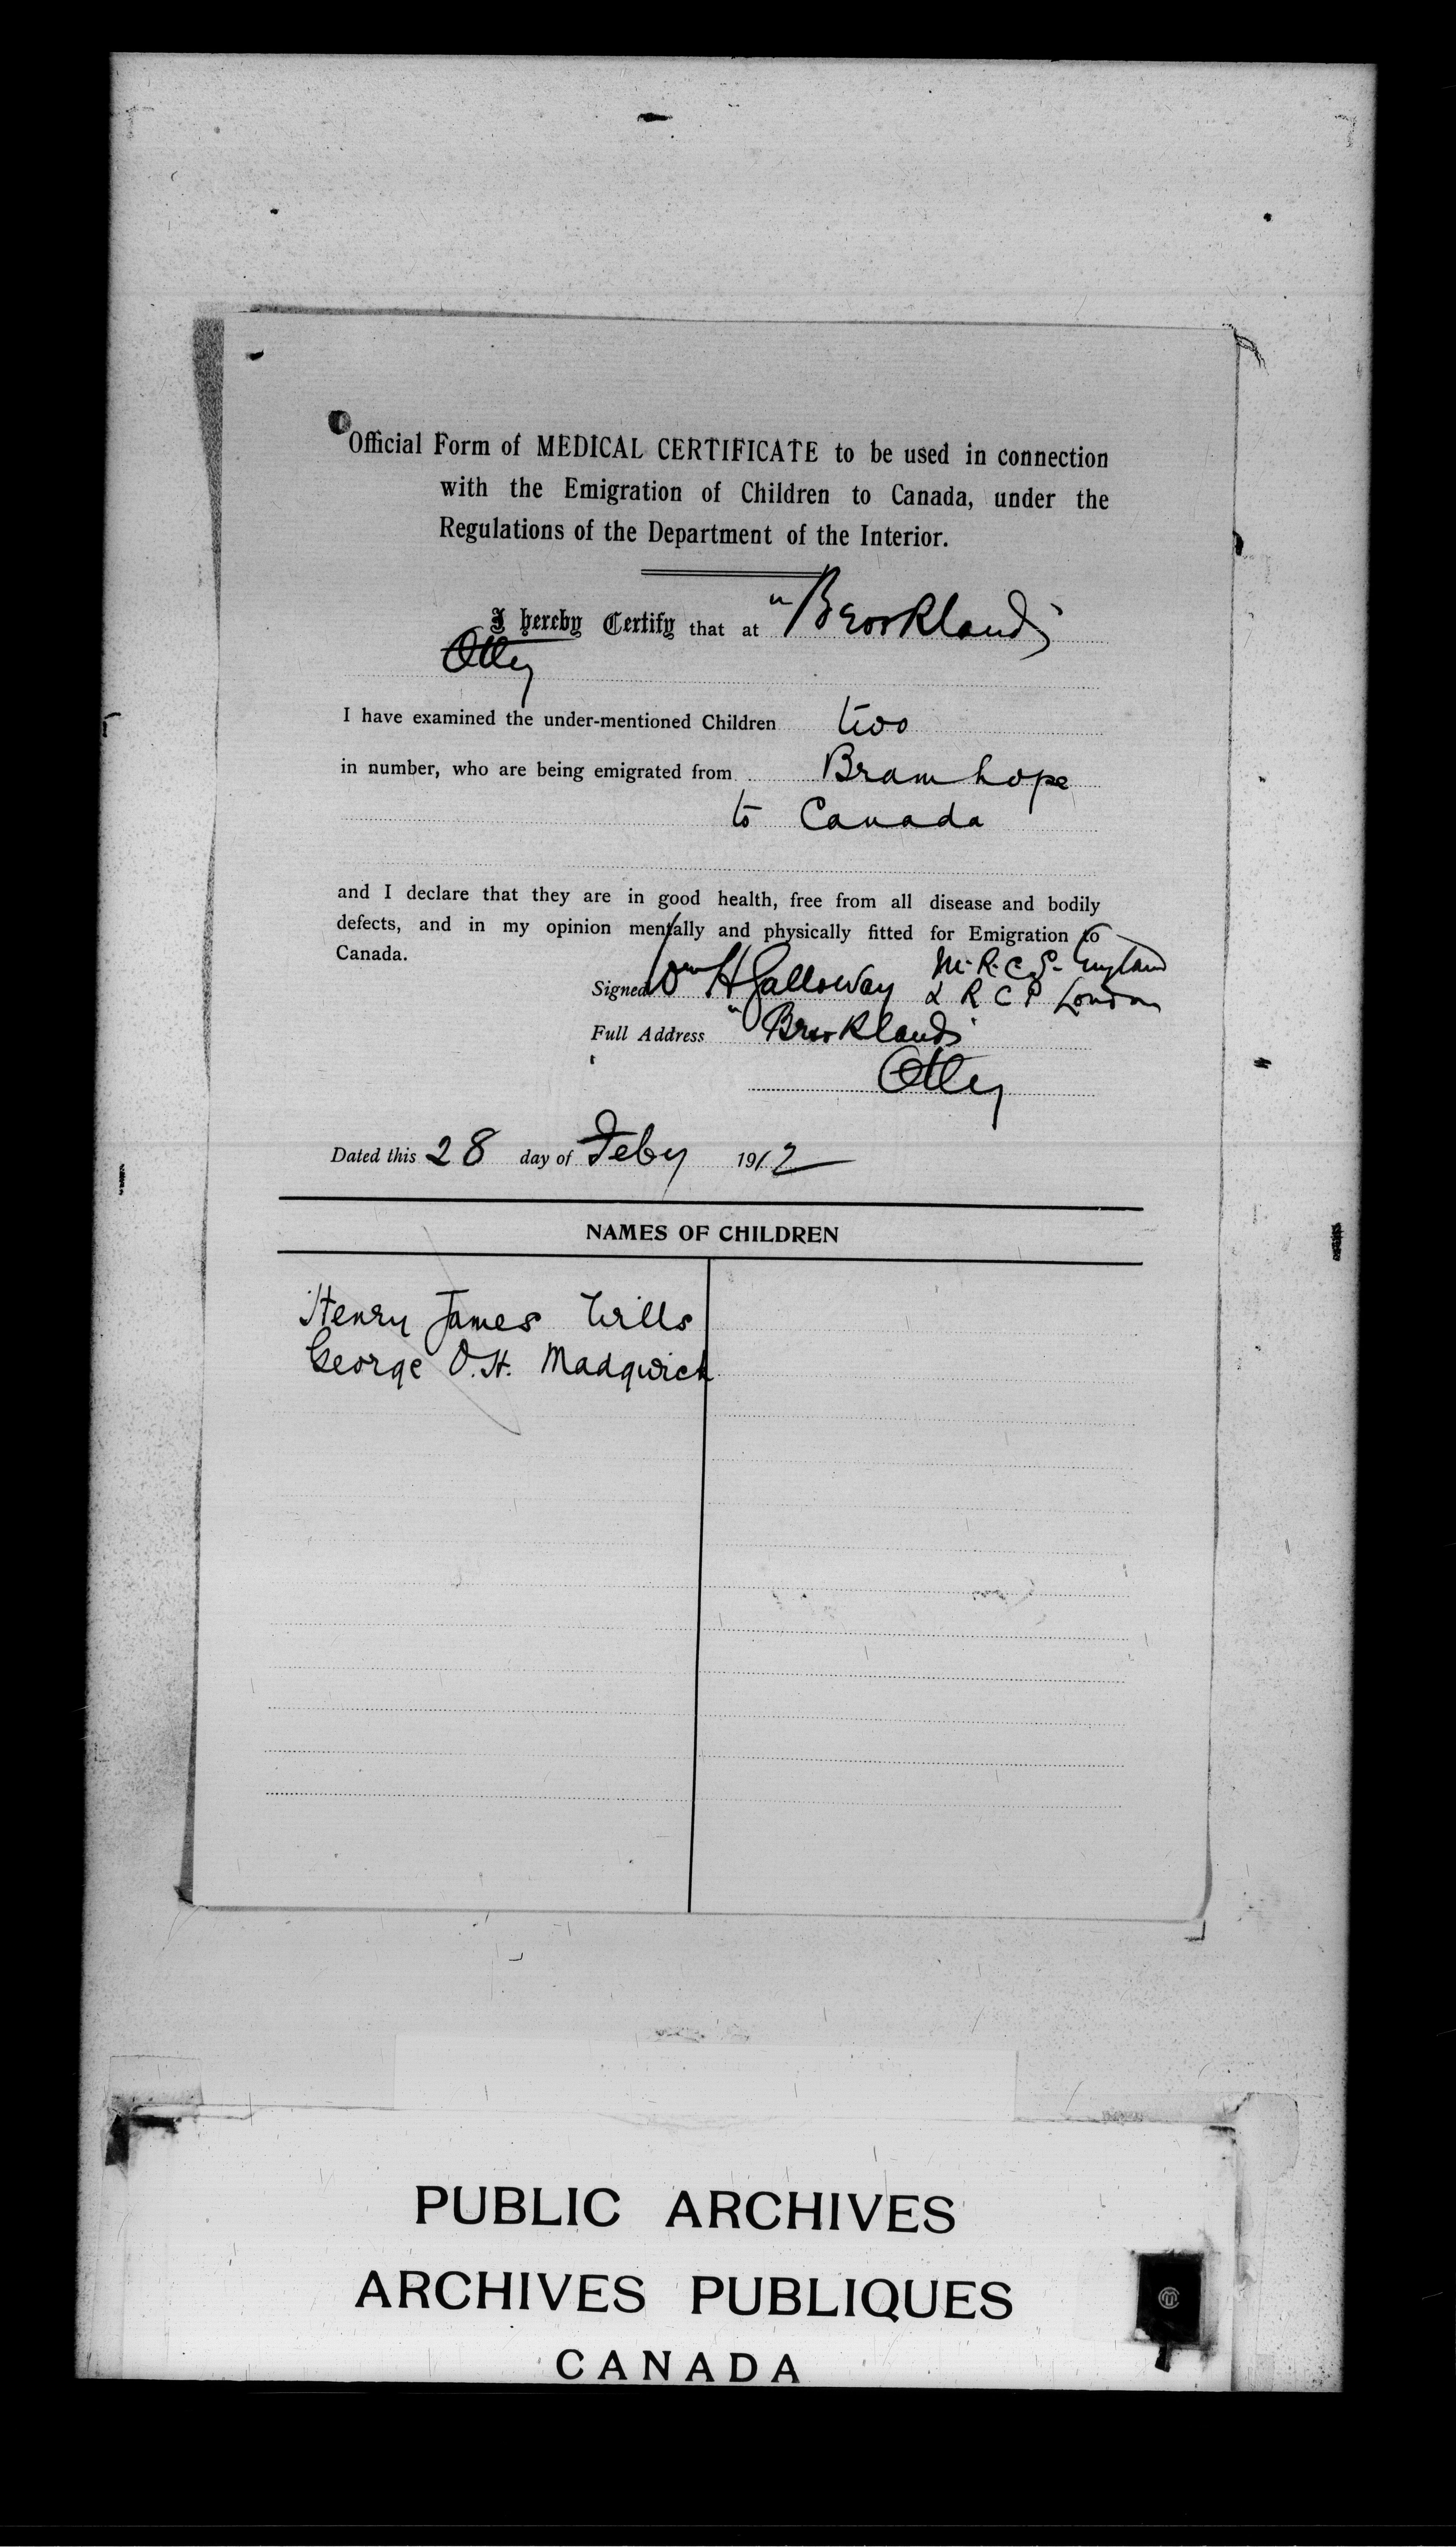 Official Form of MEDICAL CERTIFICATE to be used in connection
with the Emigration of Children to Canada, under the
Regulations of the Department of the Interior.
I hereby Certify that at "Brooklands"
Otley
I have examined the under-mentioned Children two
in number, who are being emigrated from Bramhope
to Canada
and I declare that they are in good health, free from all disease and bodily
defects, and in my opinion mentally and physically fitted for Emigration to
Canada.
M.R.C.S. England
Signed Wm H Galloway L R C P London
Full Address "Brooklands"
Otley
Dated this 28 day of Feby 1912
NAMES OF CHILDREN
Henry James Wills
George O.H. Madgwick
PUBLIC ARCHIVES
ARCHIVES PUBLIQUES
CANADA